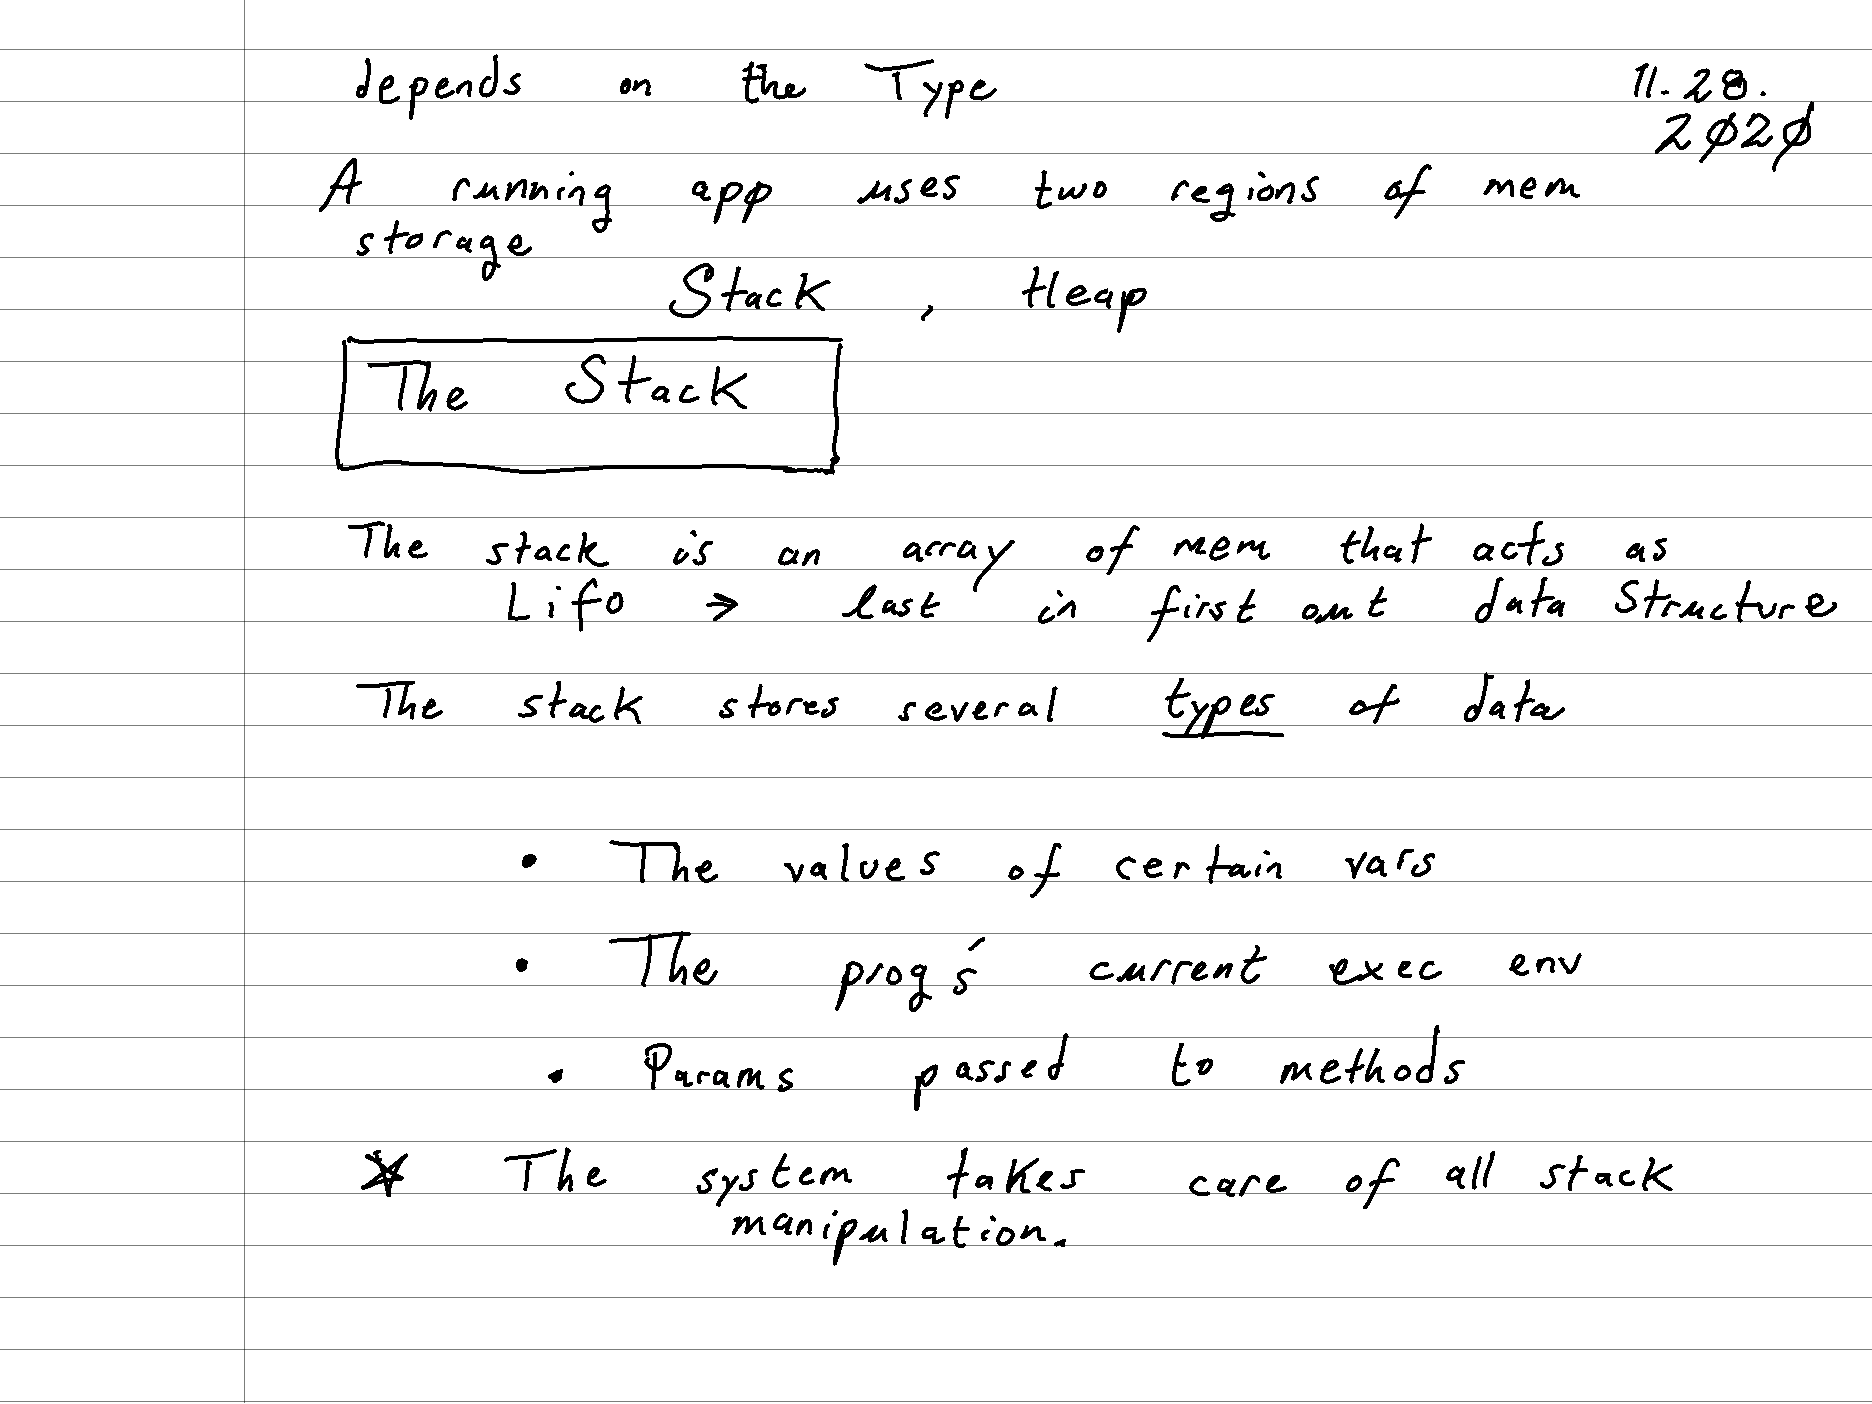 depends on the Type
11.28.
2020
A running app uses two regions of mem
storage
Stack , Heap
The Stack
The stack is an array of mem that acts as
Lifo → last in first out data Structure
The stack stores several types of data
• The values of certain vars
• The prog's current exec env
• Params passed to methods
★ The system takes care of all stack
manipulation.